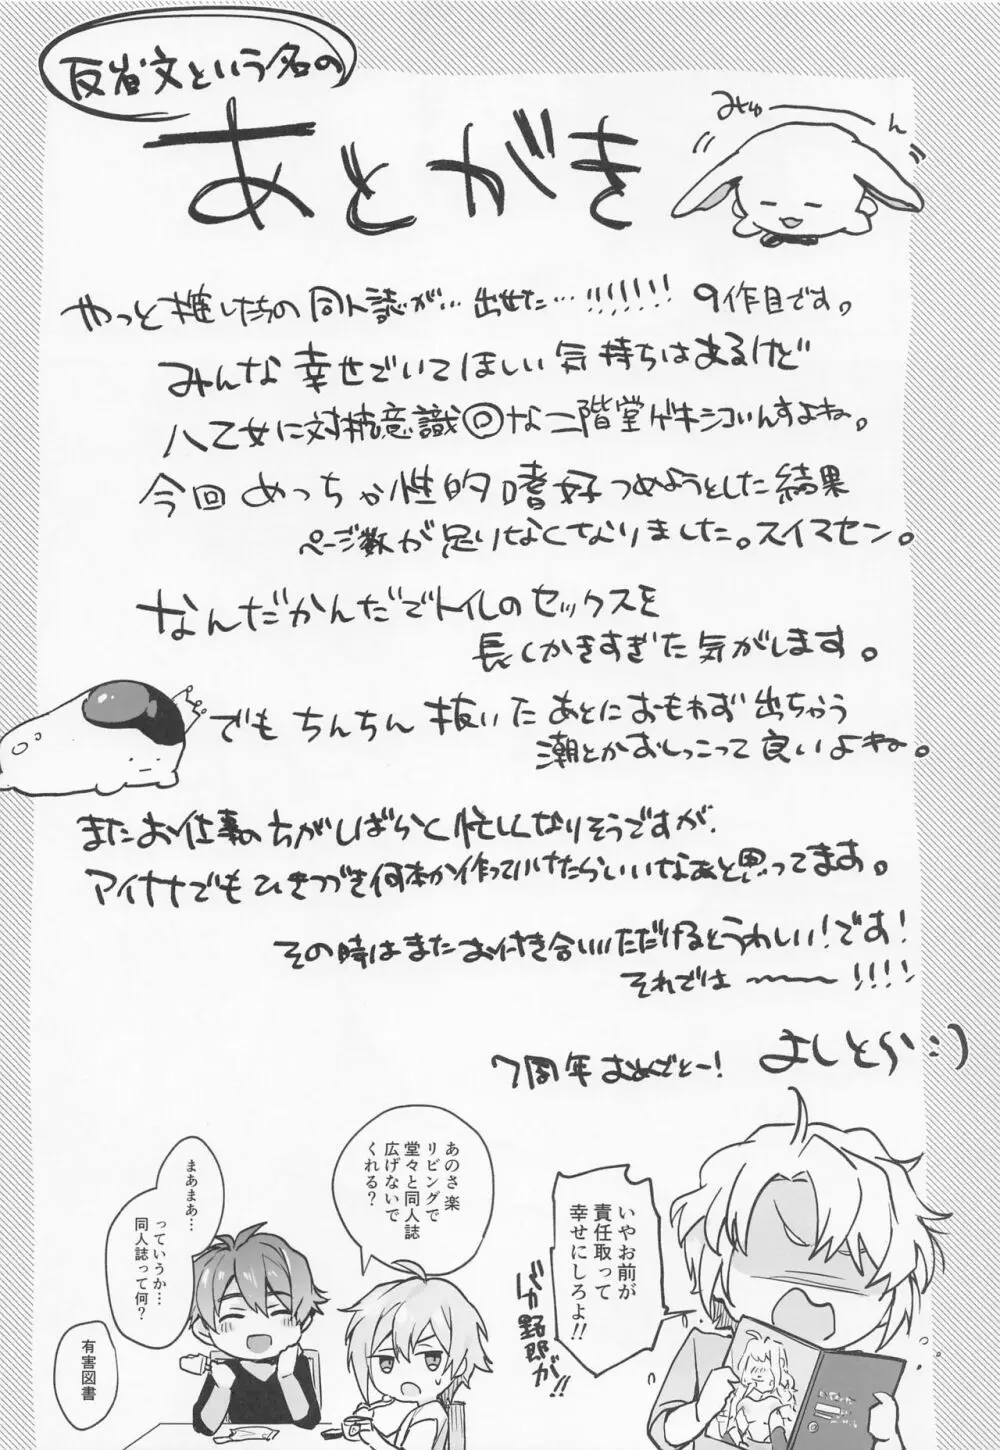 反省文という名の
あとがき
みゅーーん
やっと推したちの同人誌が…出せた…!!!!!!! 9作目です。
みんな幸せでいてほしい気持ちはあるけど
八乙女に対抗意識◎な二階堂ゲキシコいんすよね。
今回めっちゃ性的嗜好つめようとした結果
ページ数が足りなくなりました。スイマセン。
なんだかんだでトイレのセックスを
長くかきすぎた気がします。
でもちんちん抜いたあとにおもわず出ちゃう
潮とかおしっこって良いよね。
またお仕事の方がしばらく忙しくなりそうですが、
アイナナでもひきつづき何本か作っていけたらいいなぁと思ってます。
その時はまたお付き合いいただけるとうれしい!です!
それでは〜〜!!!!
7周年おめでとー!
よしとら:)
いやお前が
責任取って
幸せにしろよ!!
バカ野郎が!!
あのさ楽
リビングで
堂々と同人誌
広げないで
くれる?
まあまあ…
っていうか…
同人誌って何?
有害図書